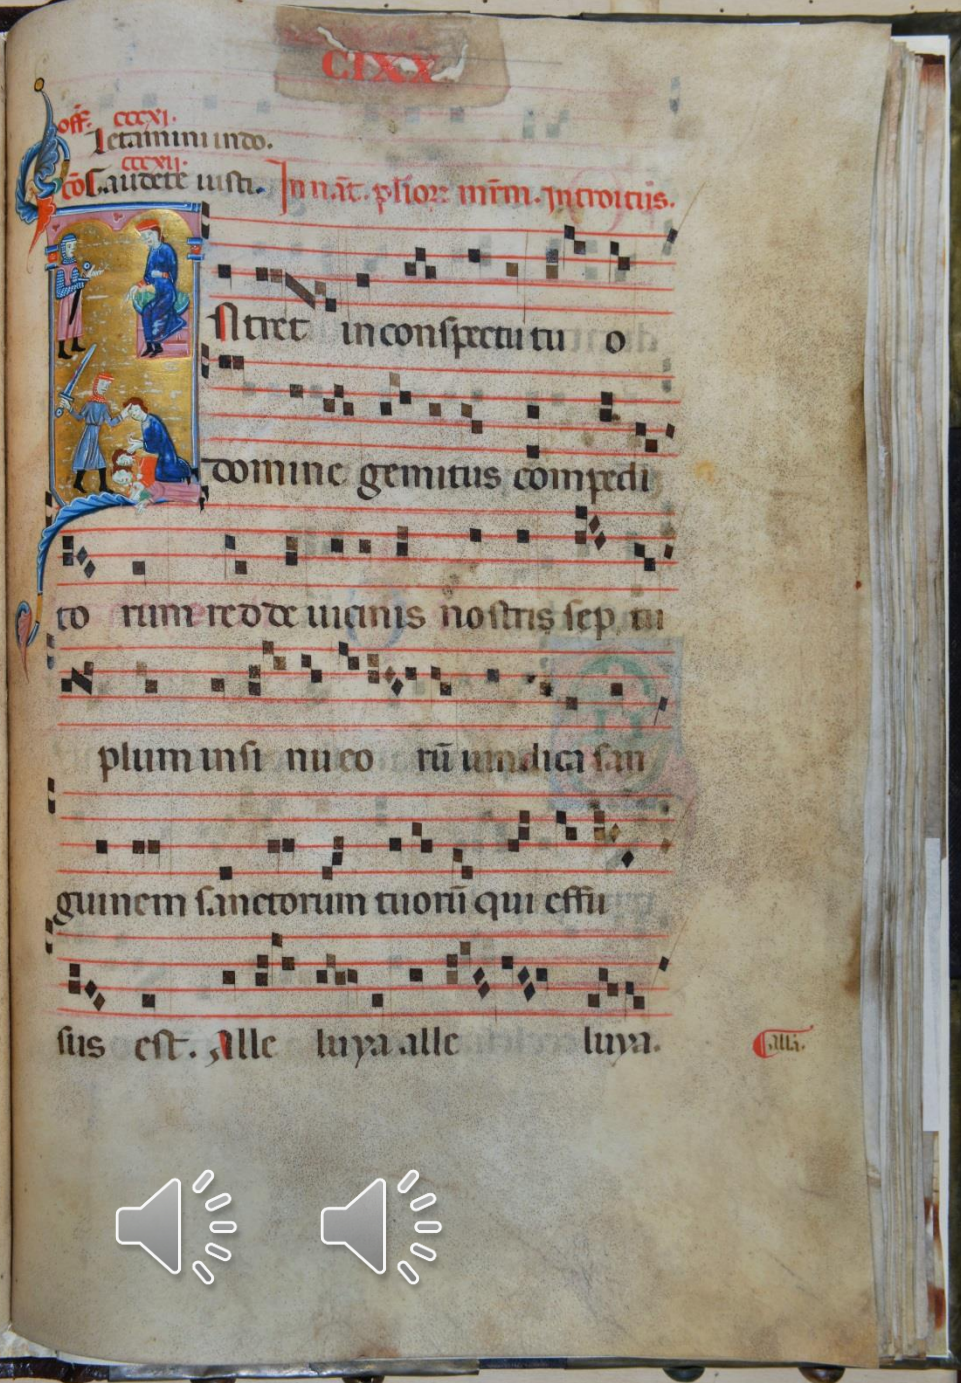 CIXX
off. cccxi.
Letamini in do.
cccxii.
cō Gaudete iusti. In nāt. plīor mr̄m. introitus.
Ntret in conspectu tu o
domine gemitus compedi
to rum redde uicinis nostris sep tu
plum in si nu eo rū uindica san
guinem sanctorum tuorū qui effu
sus est. Alle luya alle luya.
Alla.